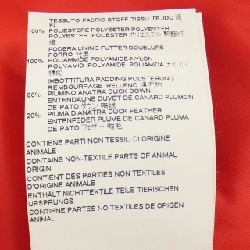 TESSUTO FABRIC STOFF TISSU TEJIDO
100% POLIESTERE POLYESTER POLYESTER
POLYESTER POLIESTER
FODERA LINING FUTTER DOUBLURE
FORRO
100% POLIAMMIDE POLYAMIDE-NYLON
POLYAMID POLYAMIDE POLIAMIDA
IMBOTTITURA PADDING POLSTERUNG
REMBOURRAGE RELLENO
80% PIUMINO ANATRA DUCK DOWN
ENTENDAUNE DUVET DE CANARD PLUMON
DE PATO
20% PIUMA ANATRA DUCK FEATHER
ENTENFEDER PLUME DE CANARD PLUMA
DE PATO
CONTIENE PARTI NON TESSILI DI ORIGINE
ANIMALE
CONTAINS NON-TEXTILE PARTS OF ANIMAL
ORIGIN
CONTIENT DES PARTIES NON TEXTILES
D'ORIGINE ANIMALE
ENTHÄLT NICHTTEXTILE TEILE TIERISCHEN
URSPRUNGS
CONTIENE PARTES NO TEXTILES DE ORIGEN
ANIMAL